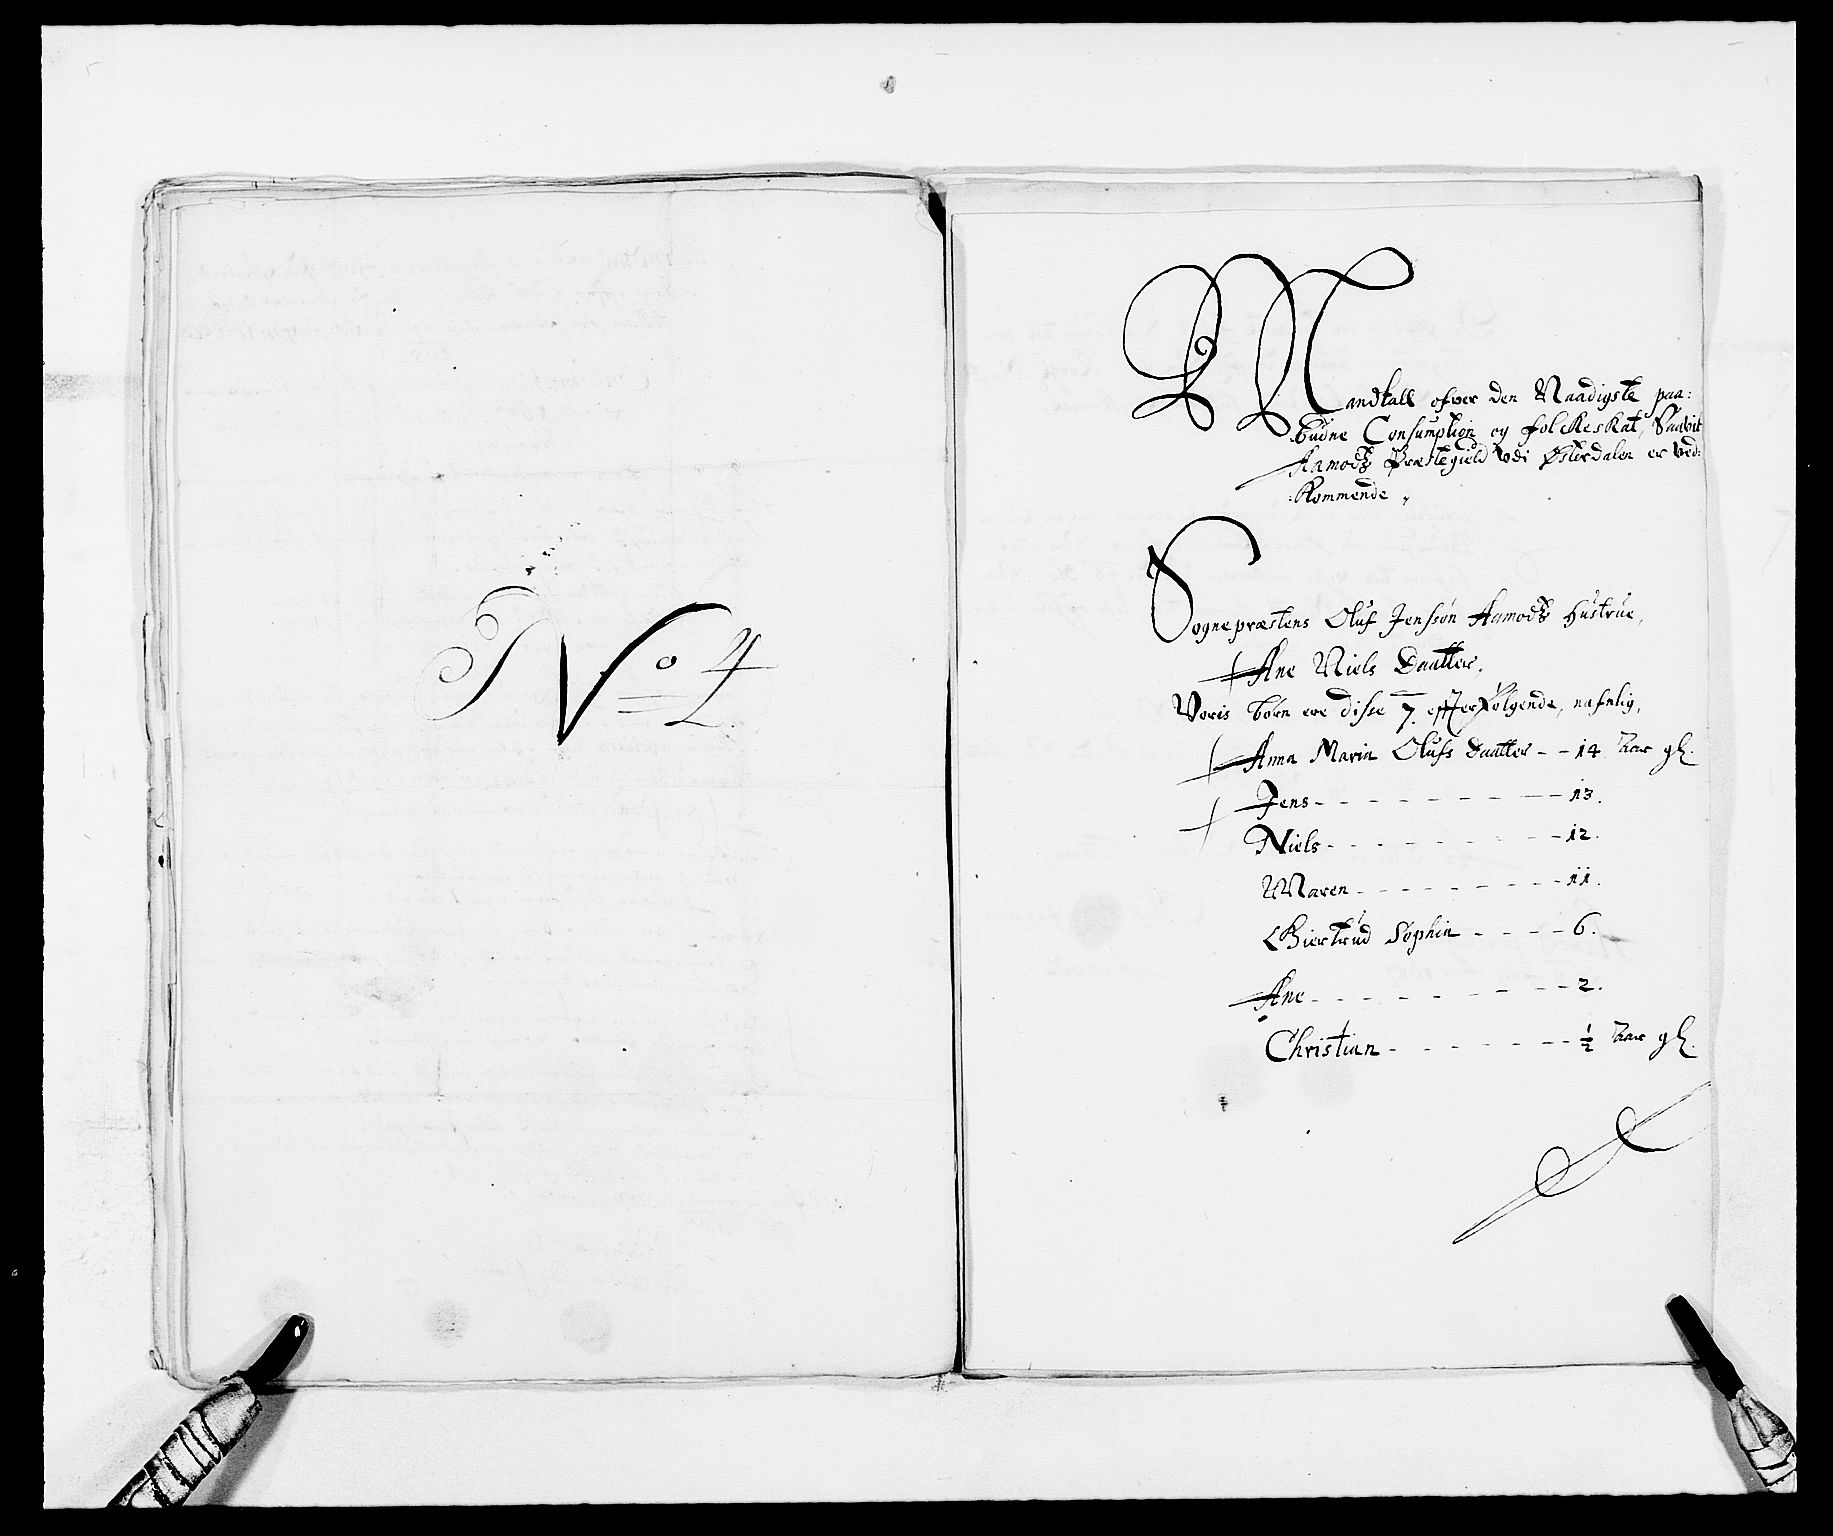 No 4
Mandtall ofver den Naadigste paa:
budne Consumption og folckeskat, Saavit
Aamodtz Præstegield vdi Østerdalen er ved:
kommende,
Sognepræstens Oluf Jenssøn Aamodtz hustrue,
Ane Niels Daatter,
Voris børn ere disse 7. efterfølgende, nafnlig,
Anna Maria Olufs Daatter - - 14 Aar gl.
Jens - - - - - - - 13.
Niels - - - - - - - 12.
Maren - - - - - - - 11.
Giertrud Sophia - - - - 6.
Ane - - - - - - - 2.
Christian - - - - - - - ½ Aar gl.